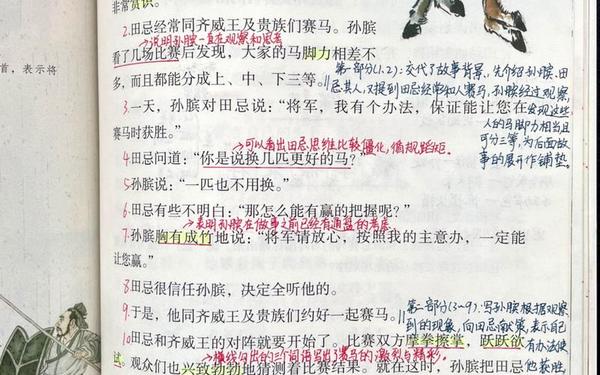 非常赏识。
2.田忌经常同齐威王及贵族们赛马。孙膑
说明孙膑一直在观察和思考
看了几场比赛后发现，大家的马脚力相差不
首，表示将
多，而且都能分成上、中、下三等。
第一部分(1、2)：交代了故事背景，先介绍孙膑、田
忌其人，又提到田忌经常和人赛马，孙膑经过观察，
发现这些
人的马脚力相当且
可分三等，为后面故
事的展开作铺垫。
3.一天，孙膑对田忌说：“将军，我有个办法，保证能让您在
赛马时获胜。”
可以看出田忌思维比较僵化，循规蹈矩。
4.田忌问道：“你是说换几匹更好的马？”
5.孙膑说：“一匹也不用换。”
6.田忌有些不明白：“那怎么能有赢的把握呢？”
表明孙膑在做事之前已经有通盘的考虑
7.孙膑胸有成竹地说：“将军请放心，按照我的主意办，一定能
让您赢。”
8.田忌很信任孙膑，决定全听他的。
9.于是，他同齐威王及贵族们约好一起赛马。
第二部分(3~9)：写孙膑根据观察
到的现象，向田忌献策，表示自己
有办法使
他获胜
10.田忌和齐威王的对阵就要开始了。比赛双方摩拳擦掌，跃跃欲
横线勾出的三个词语写出了赛马的激烈与精彩。
试。观众们也兴致勃勃地猜测着比赛结果。就在这时，孙膑把田忌